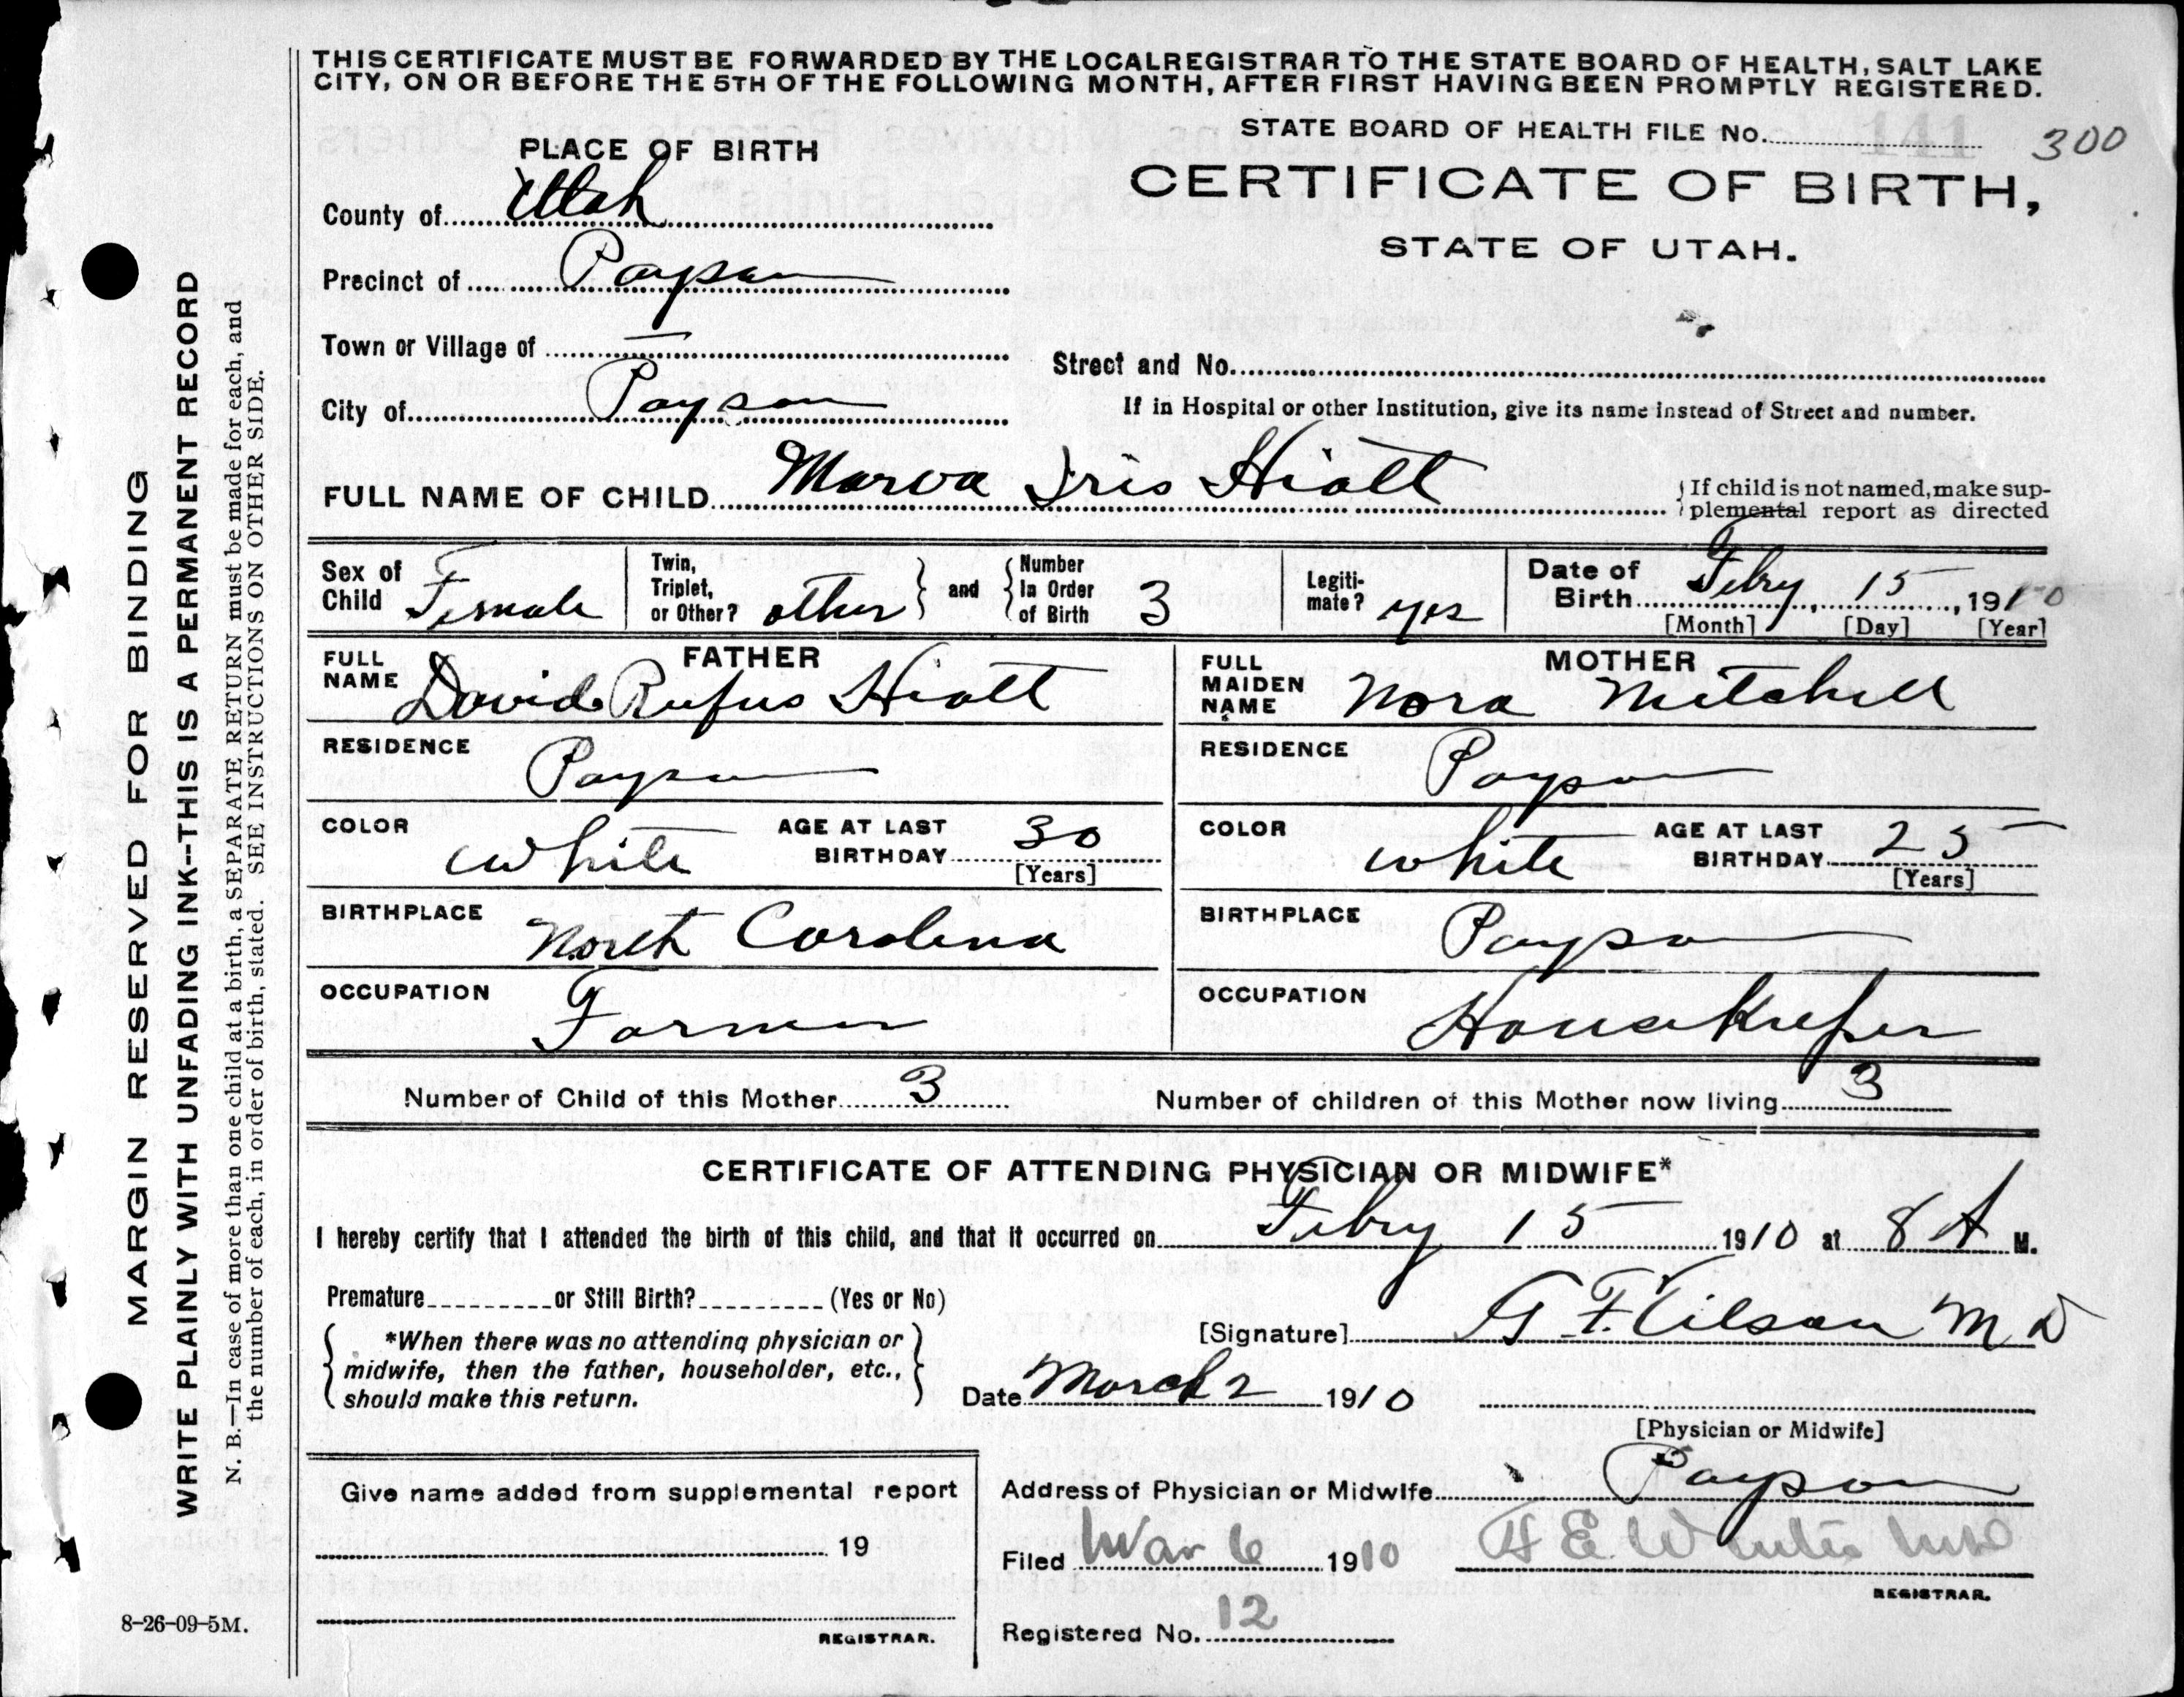 THIS CERTIFICATE MUST BE FORWARDED BY THE LOCAL REGISTRAR TO THE STATE BOARD OF HEALTH, SALT LAKE
CITY, ON OR BEFORE THE 5TH OF THE FOLLOWING MONTH, AFTER FIRST HAVING BEEN PROMPTLY REGISTERED.
STATE BOARD OF HEALTH FILE No. 141 300
CERTIFICATE OF BIRTH,
STATE OF UTAH.
PLACE OF BIRTH
County of Utah
Precinct of Payson
Town or Village of —
City of Payson
Street and No.
If in Hospital or other Institution, give its name instead of Street and number.
FULL NAME OF CHILD Marva Iris Hiatt
{If child is not named, make sup-
plemental report as directed
Sex of Child Female
Twin, Triplet, or Other? other } and { Number In Order of Birth 3
Legiti-mate? yes
Date of Birth Febry, 15, 1910
[Month] [Day] [Year]
FATHER
FULL NAME David Rufus Hiatt
RESIDENCE Payson
COLOR White AGE AT LAST BIRTHDAY 30
[Years]
BIRTHPLACE North Carolina
OCCUPATION Farmer
MOTHER
FULL MAIDEN NAME Nora Mitchell
RESIDENCE Payson
COLOR White AGE AT LAST BIRTHDAY 25
[Years]
BIRTHPLACE Payson
OCCUPATION Housekeeper
Number of Child of this Mother 3 Number of children of this Mother now living 3
CERTIFICATE OF ATTENDING PHYSICIAN OR MIDWIFE*
I hereby certify that I attended the birth of this child, and that it occurred on Febry 15 1910 at 8 A M.
Premature or Still Birth? (Yes or No)
{ *When there was no attending physician or
midwife, then the father, householder, etc.,
should make this return. }
[Signature] M D
Date March 2 1910
[Physician or Midwife]
Address of Physician or Midwife Payson
Give name added from supplemental report
19
REGISTRAR.
Filed Mar 6 1910
REGISTRAR.
Registered No. 12
8-26-09-5M.
MARGIN RESERVED FOR BINDING
WRITE PLAINLY WITH UNFADING INK--THIS IS A PERMANENT RECORD
N. B.—In case of more than one child at a birth, a SEPARATE RETURN must be made for each, and
the number of each, in order of birth, stated. SEE INSTRUCTIONS ON OTHER SIDE.